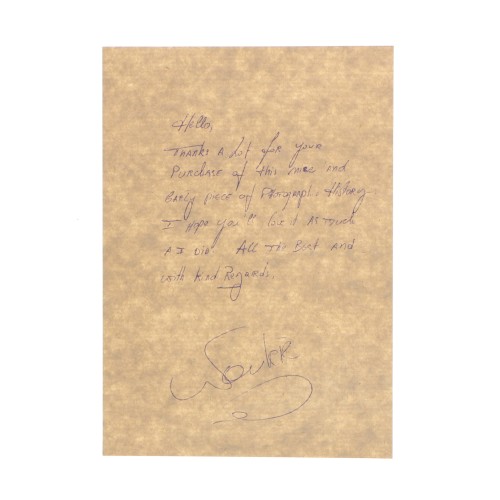 Hello,
THANKS A lot for your
Purchase of this nice and
Early piece of Phonograph. History
I hope you'll love it As much
As I did. All The Best and
with kind Regards.